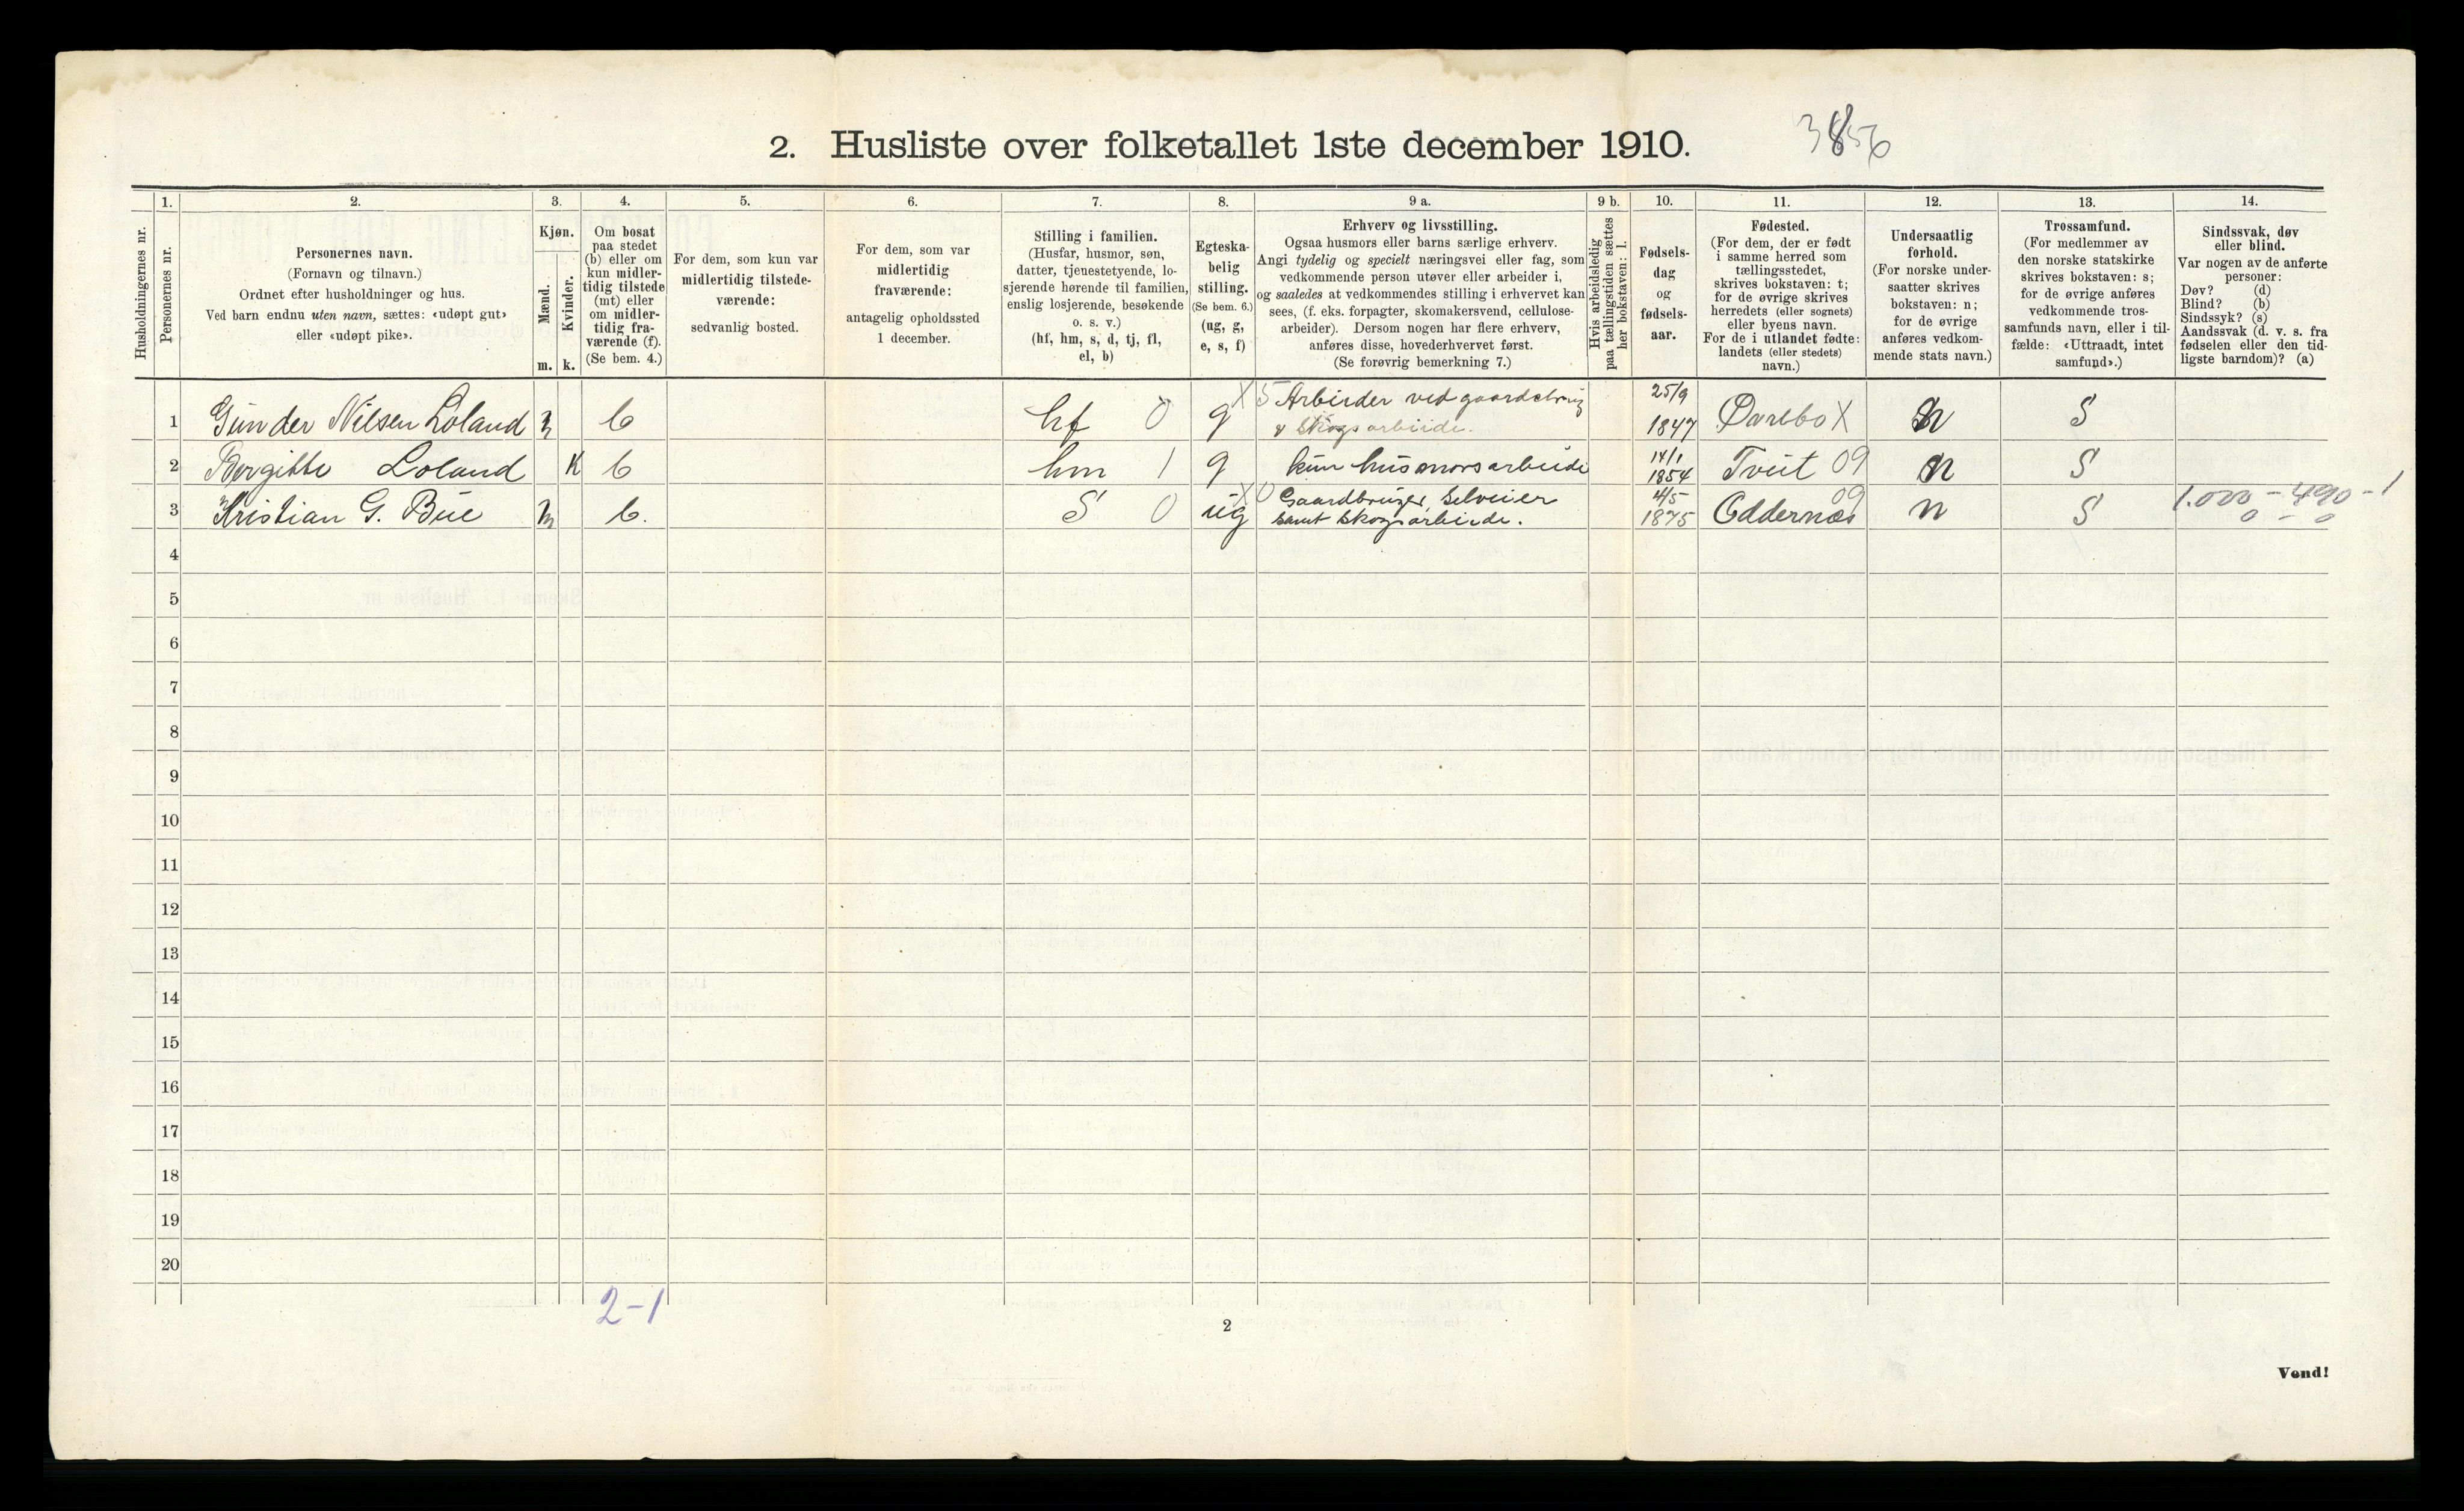 2. Husliste over folketallet 1ste december 1910.
3856
Husholdningernes nr.
1.
Personernes nr.
2.
Personernes navn.
(Fornavn og tilnavn.)
Ordnet efter husholdninger og hus.
Ved barn endnu uten navn, sættes: «udøpt gut»
eller «udøpt pike».
3.
Kjøn.
Mænd.
m.
Kvinder.
k.
4.
Om bosat
paa stedet
(b) eller om
kun midler-
tidig tilstede
(mt) eller
om midler-
tidig fra-
værende (f).
(Se bem. 4.)
5.
For dem, som kun var
midlertidig tilstede-
værende:
sedvanlig bosted.
6.
For dem, som var
midlertidig
fraværende:
antagelig opholdssted
1 december.
7.
Stilling i familien.
(Husfar, husmor, søn,
datter, tjenestetyende, lo-
sjerende hørende til familien,
enslig losjerende, besøkende
o. s. v.)
(hf, hm, s, d, tj, fl,
el, b)
8.
Egteska-
belig
stilling.
(Se bem. 6.)
(ug, g,
e, s, f)
9 a.
Erhverv og livsstilling.
Ogsaa husmors eller barns særlige erhverv.
Angi tydelig og specielt næringsvei eller fag, som
vedkommende person utøver eller arbeider i,
og saaledes at vedkommendes stilling i erhvervet kan
sees, (f. eks. forpagter, skomakersvend, cellulose-
arbeider). Dersom nogen har flere erhverv,
anføres disse, hovederhvervet først.
(Se forøvrig bemerkning 7.)
9 b.
Hvis arbeidsledig
paa tællingstiden sættes
her bokstaven: l.
10.
Fødsels-
dag
og
fødsels-
aar.
11.
Fødested.
(For dem, der er født
i samme herred som
tællingsstedet,
skrives bokstaven: t;
for de øvrige skrives
herredets (eller sognets)
eller byens navn.
For de i utlandet fødte:
landets (eller stedets)
navn.)
12.
Undersaatlig
forhold.
(For norske under-
saatter skrives
bokstaven: n;
for de øvrige
anføres vedkom-
mende stats navn.)
13.
Trossamfund.
(For medlemmer av
den norske statskirke
skrives bokstaven: s;
for de øvrige anføres
vedkommende tros-
samfunds navn, eller i til-
fælde: «Uttraadt, intet
samfund».)
14.
Sindssvak, døv
eller blind.
Var nogen av de anførte
personer:
Døv? (d)
Blind? (b)
Sindssyk? (s)
Aandssvak (d. v. s. fra
fødselen eller den tid-
ligste barndom)? (a)
1 Gunder Nilsen Loland m b hf 0 g X 5 Arbeider ved gaardsbrug
v skogsarbeide. 25/9 1847 Øvrebo X n S
2 Bergitte Loland K b hm 1 g kun husmorsarbeide 14/1 1854 Tveit 09 n S
3 Kristian G. Bue m b. S 0 ug X 0 Gaardbruger, Selveier
samt skogsarbeide. 4/5 1875 Oddernæs 09 n S 1.000 - 490 - 1
0 - 0
4
5
6
7
8
9
10
11
12
13
14
15
16
17
18
19
20
2-1
2
Vend!